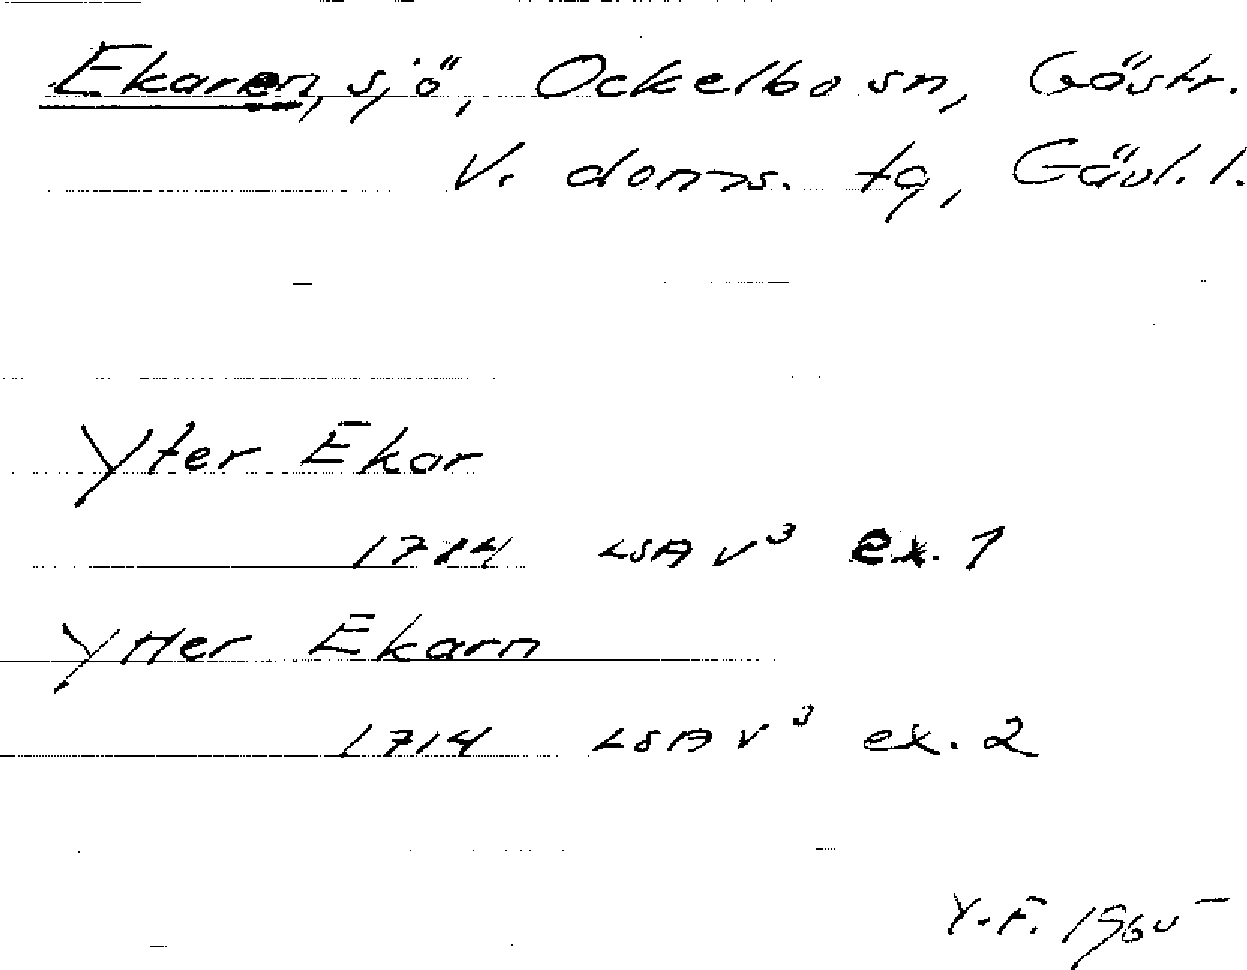 Ekaren, sjö, Ockelbo sn, Gästr.
V. doms. tg, Gävl. l.
Yter Ekar
1714 LSA V³ ex. 1
Ytter Ekarn
1714 LSA V³ ex. 2
Y.F. 1965